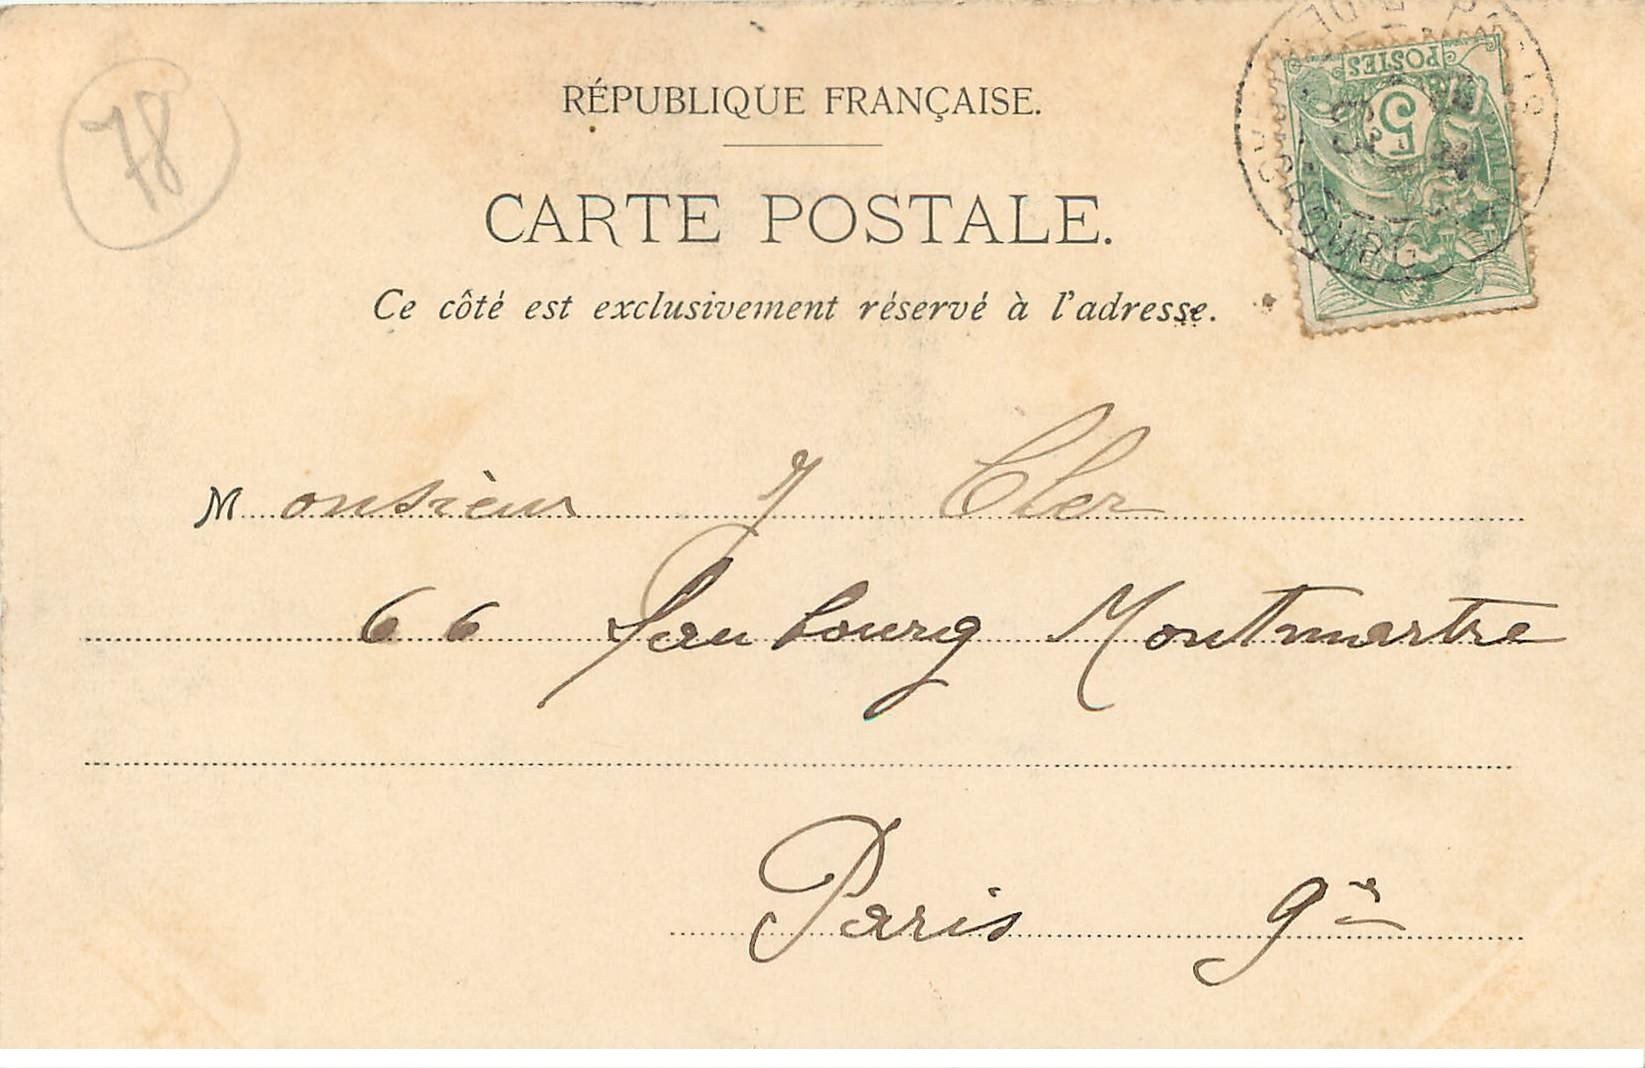 78
RÉPUBLIQUE FRANÇAISE.
CARTE POSTALE.
Ce côté est exclusivement réservé à l'adresse.
POSTES
5
Monsieur J Cler
66 Faubourg Montmartre
Paris 9e